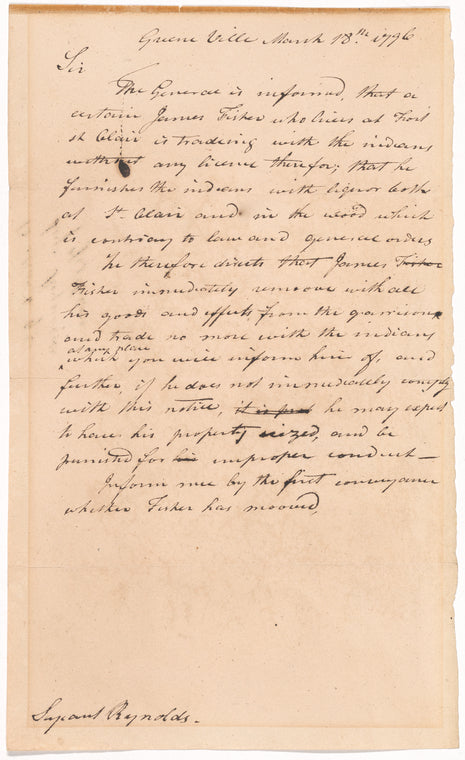 Greene Ville March 18th. 1796
Sir
The General is informed, that a
certain James Fisher who lives at Fort
St Clair is tradeing with the indians
without any licence therefor; that he
furnishes the indians with liquor both
at St. Clair and in the wood which
is contrary to law and general orders
he therefore directs that James Fisher
Fisher immediately remoove with all
his goods and effects from the garrison
and trade no more with the indians
at any place
which you will inform him of, and
further, if he does not immediately comply
with this notice, it is he may expect
to have his property seized, and be
punished for his improper conduct—
Inform me by the first conveyance
whether Fisher has mooved,
Serjeant Reynolds.